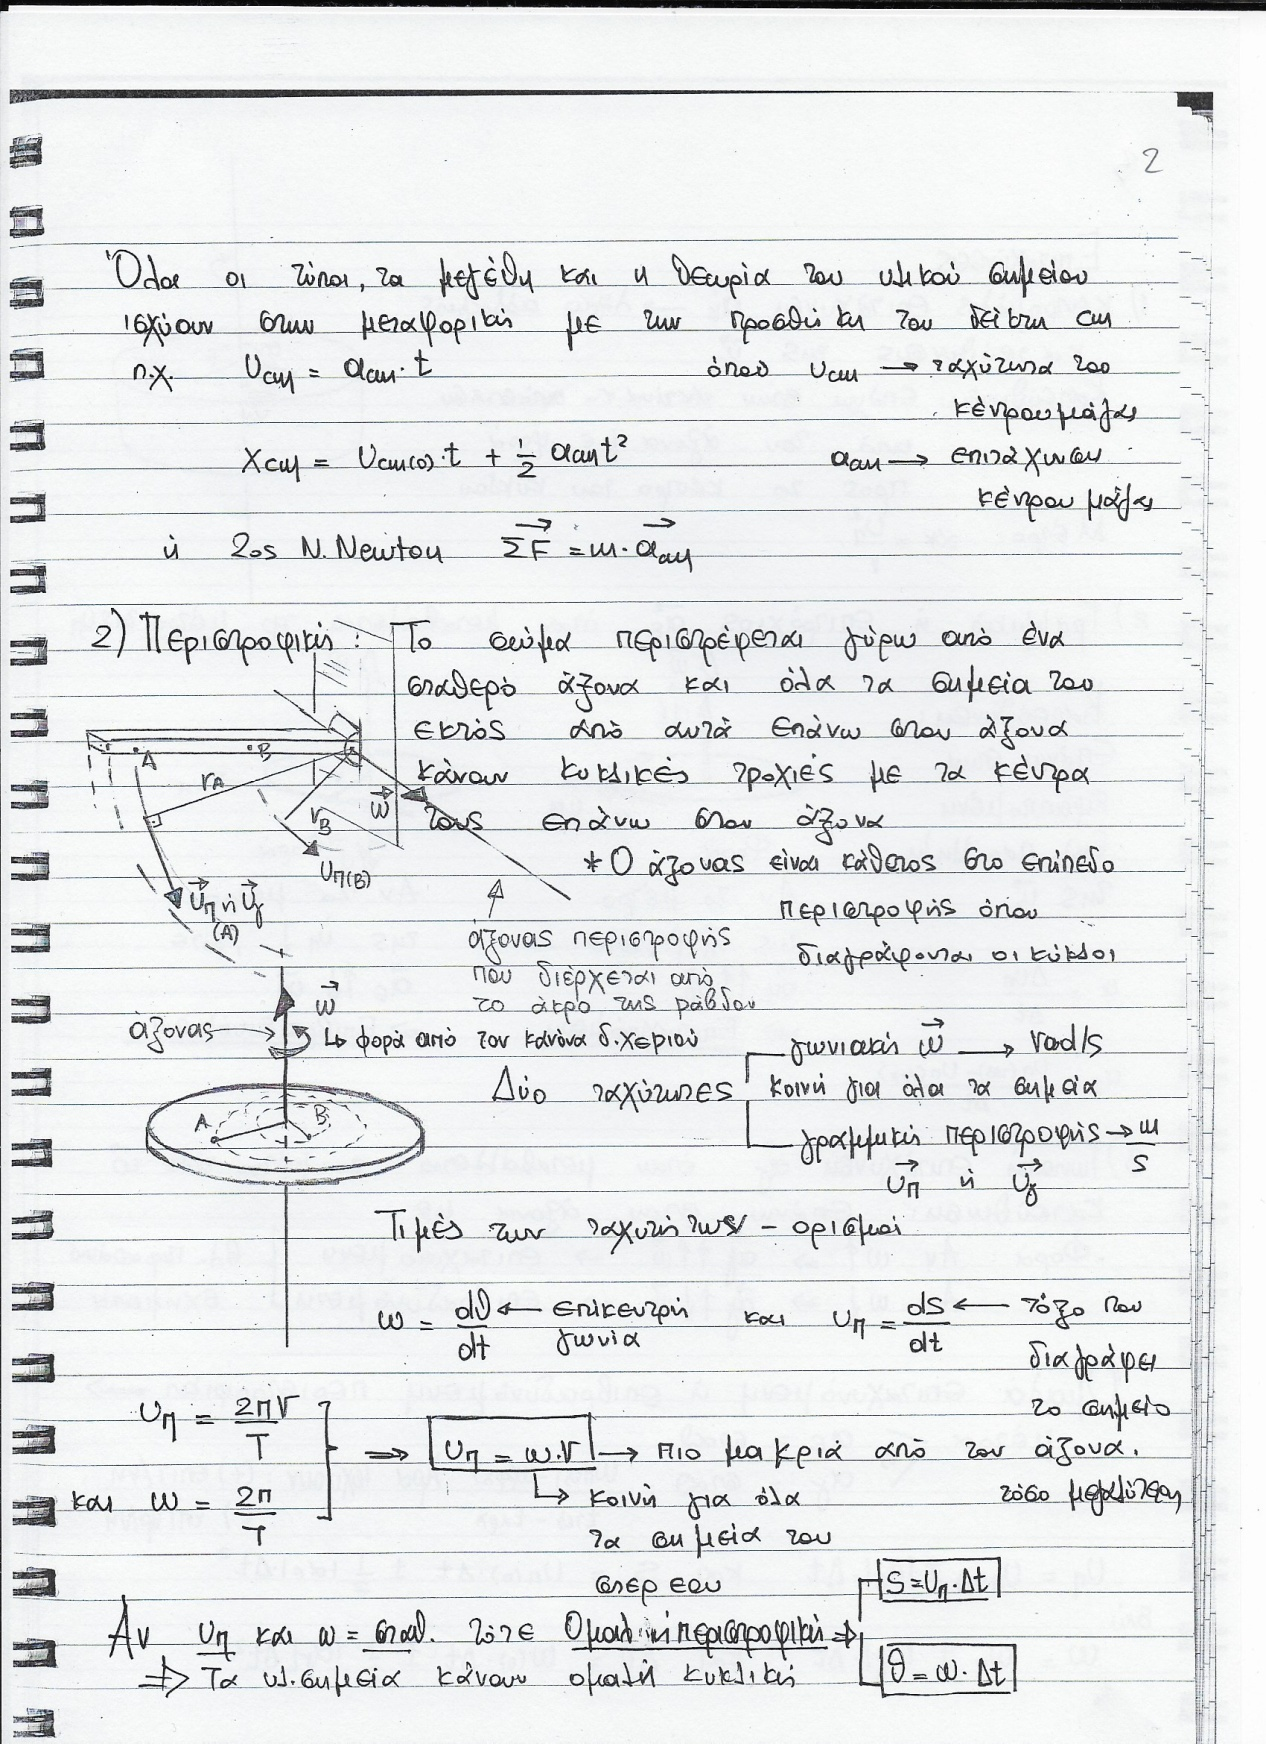 2
Όλοι οι τύποι, τα μεγέθη και η θεωρία του υλικού σημείου
ισχύουν στην μεταφορική με την προσθήκη του δείκτη cm
π.χ. υcm = αcm · t όπου υcm → ταχύτητα του
κέντρου μάζας
xcm = υcm(0) · t + 1/2 αcm t² αcm → επιτάχυνση
κέντρου μάζας
ή 2ος Ν. Newton ΣF = m · αcm
2) Περιστροφική: Το σώμα περιστρέφεται γύρω από ένα
σταθερό άξονα και όλα τα σημεία του
εκτός από αυτά επάνω στον άξονα
κάνουν κυκλικές τροχιές με τα κέντρα
τους επάνω στον άξονα
* Ο άξονας είναι κάθετος στο επίπεδο
περιστροφής όπου
διαγράφονται οι κύκλοι
A B
rA rB ω
υπ(B)
υπ ή υγ
(A)
άξονας περιστροφής
που διέρχεται από
το άκρο της ράβδου
ω
άξονας → ↳ φορά από τον κανόνα δ. χεριού
A B
Δύο ταχύτητες
γωνιακή ω → rad/s
κοινή για όλα τα σημεία
γραμμική περιστροφής → m/s
υπ ή υγ
Τιμές των ταχυτήτων - ορισμοί
ω = dθ/dt ← επίκεντρη γωνία και υπ = dS/dt ← τόξο που
διαγράφει
το σημείο
υπ = 2πr/T
και ω = 2π/T
⇒ υπ = ω · r → πιο μακριά από τον άξονα.
τόσο μεγαλύτερη
↳ κοινή για όλα
τα σημεία του
στερεού
Αν υπ και ω = σταθ. τότε Ομαλή περιστροφική ⇒
S = υπ · Δt
θ = ω · Δt
⇒ Τα υλ. σημεία κάνουν ομαλή κυκλική